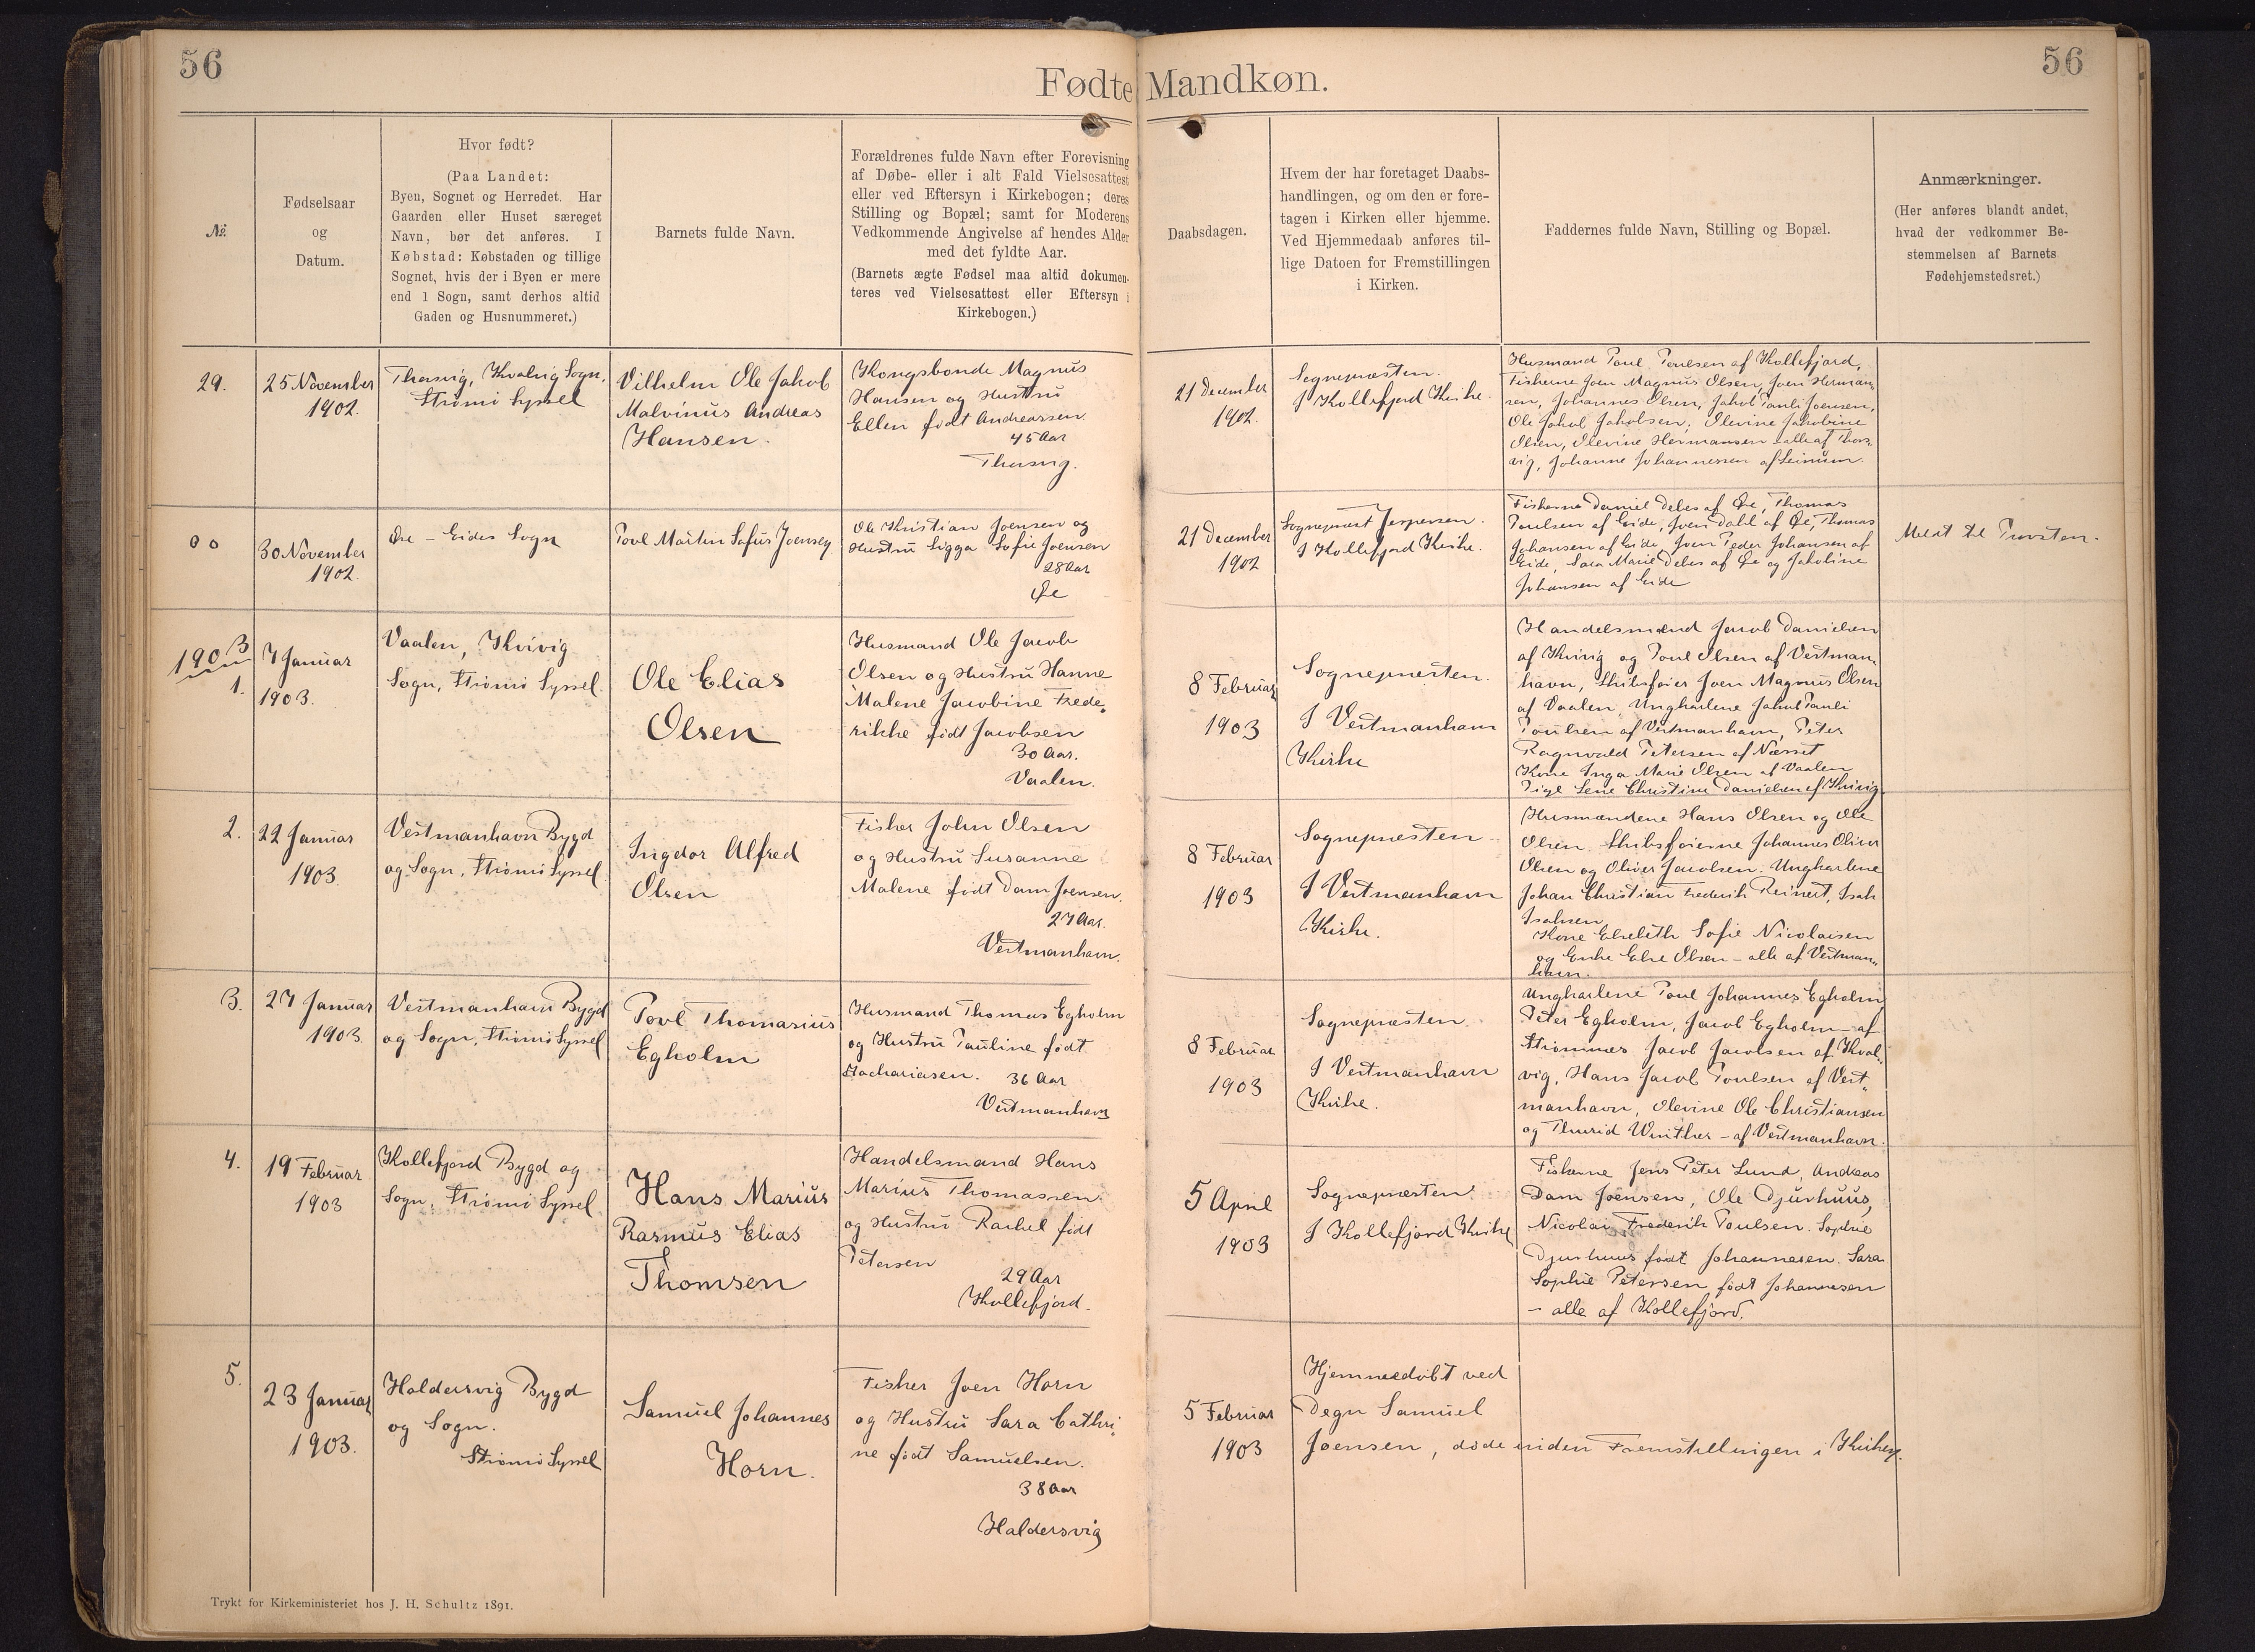 56
56
Fødte Mandkøn.
№.
Fødselsaar
og
Datum.
Hvor født?
(Paa Landet:
Byen, Sognet og Herredet. Har
Gaarden eller Huset særeget
Navn, bør det anføres. I
Købstad: Købstaden og tillige
Sognet, hvis der i Byen er mere
end 1 Sogn, samt derhos altid
Gaden og Husnummeret.)
Barnets fulde Navn.
Forældrenes fulde Navn efter Forevisning
af Døbe- eller i alt Fald Vielsesattest
eller ved Eftersyn i Kirkebogen; deres
Stilling og Bopæl; samt for Moderens
Vedkommende Angivelse af hendes Alder
med det fyldte Aar.
(Barnets ægte Fødsel maa altid dokumen-
teres ved Vielsesattest eller Eftersyn i
Kirkebogen.)
Daabsdagen.
Hvem der har foretaget Daabs-
handlingen, og om den er fore-
tagen i Kirken eller hjemme.
Ved Hjemmedaab anføres til-
lige Datoen for Fremstillingen
i Kirken.
Faddernes fulde Navn, Stilling og Bopæl.
Anmærkninger.
(Her anføres blandt andet,
hvad der vedkommer Be-
stemmelsen af Barnets
Fødehjemstedsret.)
29.
25 November
1902.
Thorsvig, Kvalvig Sogn,
Strømø Syssel
Vilhelm Ole Jakob
Malvinus Andreas
Hansen.
Kongsbonde Magnus
Hansen og Hustru
Ellen født Andreassen
45 Aar
Thorsvig.
21 December
1902.
Sognepræsten.
I Kollefjord Kirke.
Husmand Poul Poulsen af Kollefjord,
Fiskerne Joen Magnus Olsen, Joen Herman-
sen, Johannes Olsen, Jakob Pauli Joensen,
Ole Jakob Jakobsen, Olevine Jakobine
Olsen, Olevine Hermansen - alle af Thors-
vig, Johanne Johannessen af Leinum.
00
30 November
1902.
Øre - Eides Sogn
Povl Martin Sofus Joensen
Ole Kristian Joensen og
Hustru Sigga Sofie Joensen
28 Aar
Øre
21 December
1902
Sognepræst Jespersen.
I Kollefjord Kirke.
Fiskerne Daniel Debes af Øre, Thomas
Poulsen af Eide, Joen Dahl af Øre, Thomas
Johansen af Eide, Joen Peder Johansen af
Eide, Sara Marie Debes af Øre og Jakobine
Johansen af Eide
Meldt til Provsten.
1903
1.
7 Januar
1903.
Vaalen, Kvivig
Sogn, Strømø Syssel.
Ole Elias
Olsen
Husmand Ole Jacob
Olsen og Hustru Hanne
Malene Jacobine Frede-
rikke født Jacobsen
30 Aar.
Vaalen.
8 Februar
1903
Sognepræsten.
I Vestmanhavn
Kirke
Handelsmænd Jacob Danielsen
af Kvivig og Poul Olsen af Vestman-
havn, Skibsfører Joen Magnus Olsen
af Vaalen, Ungkarlene Jakob Pauli
Poulsen af Vestmanhavn, Peter
Ragnvald Petersen af Næsset
Kone Inga Marie Olsen af Vaalen
Pige Lene Christine Danielsen af Kvivig
2.
22 Januar
1903.
Vestmanhavn Bygd
og Sogn, Strømø Syssel
Ingdor Alfred
Olsen
Fisker John Olsen
og Hustru Susanne
Malene født Dam Joensen.
27 Aar.
Vestmanhavn.
8 Februar
1903
Sognepræsten
I Vestmanhavn
Kirke.
Husmændene Hans Olsen og Ole
Olsen. Skibsførerne Johannes Oliver
Olsen og Oliver Jacobsen. Ungkarlene
Johan Christian Frederik Reinert, Isak
Isaksen
Kone Elsebeth Sofie Nicolaisen
og Enke Else Olsen - alle af Vestman-
havn.
3.
27 Januar
1903
Vestmanhavn Bygd
og Sogn, Strømø Syssel
Povl Thomasius
Egholm
Husmand Thomas Egholm
og Hustru Pauline født
Zachariasen. 36 Aar
Vestmanhavn
8 Februar
1903
Sognepræsten.
I Vestmanhavn
Kirke.
Ungkarlene Poul Johannes Egholm
Peter Egholm, Jacob Egholm - af
Strømnæs Jacob Jacobsen af Kval-
vig, Hans Jacob Poulsen af Vest-
manhavn, Olevine Ole Christiansen
og Thurid Winther - af Vestmanhavn.
4.
19 Februar
1903
Kollefjord Bygd og
Sogn, Strømø Syssel
Hans Marius
Rasmus Elias
Thomsen
Handelsmand Hans
Marius Thomassen
og Hustru Rachel født
Petersen
29 Aar
Kollefjord.
5 April
1903
Sognepræsten.
I Kollefjord Kirke
Fiskerne Jens Peter Lund, Andreas
Dam Joensen, Ole Djurhuus,
Nicolai Frederik Poulsen. Sophie
Djurhuus født Johannesen. Sara
Sophie Petersen født Johannesen
- alle af Kollefjord.
5.
23 Januar
1903.
Haldersvig Bygd
og Sogn.
Strømø Syssel
Samuel Johannes
Horn.
Fisker Joen Horn
og Hustru Sara Cathri-
ne født Samuelsen.
38 Aar
Haldersvig
5 Februar
1903
Hjemmedøbt ved
Degn Samuel
Joensen, døde inden Fremstillingen i Kirken.
Trykt for Kirkeministeriet hos J. H. Schultz 1891.